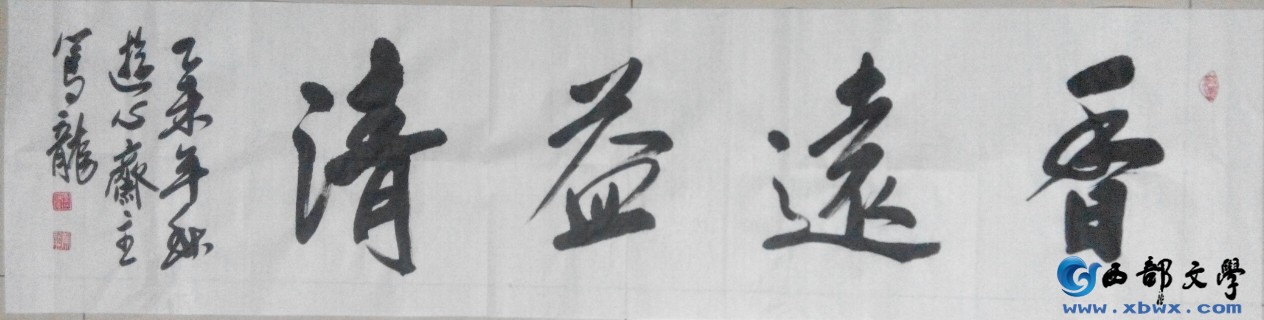 香遠益清
乙未年秋
遊心齋主
篤龍
西部文學
www.xbwx.com